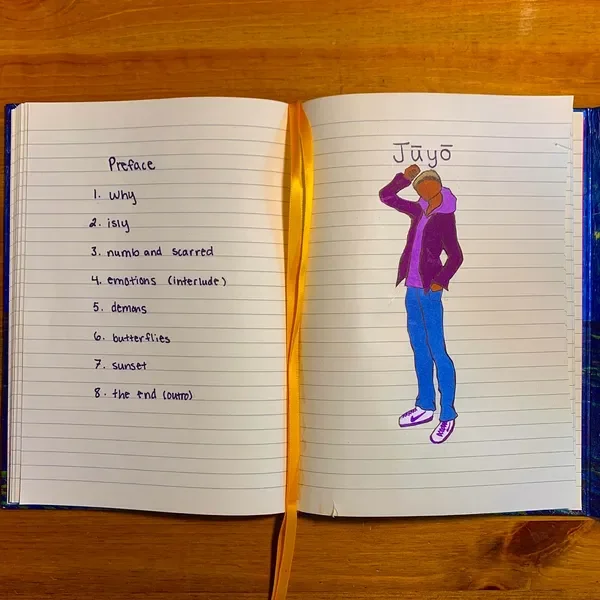 Preface
1. why
2. isly
3. numb and scarred
4. emotions (interlude)
5. demons
6. butterflies
7. sunset
8. the end (outro)
Jūyō